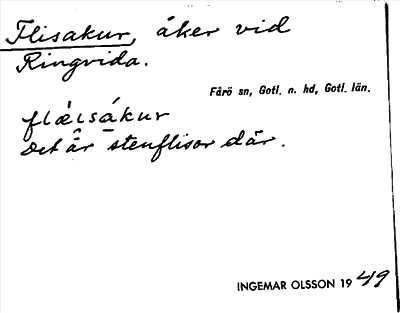 Flisakur, åker vid
Ringvida.
Fårö sn, Gotl. n. hd, Gotl. län.
flæ̂ısákur
Det är stenflisor där.
INGEMAR OLSSON 1949